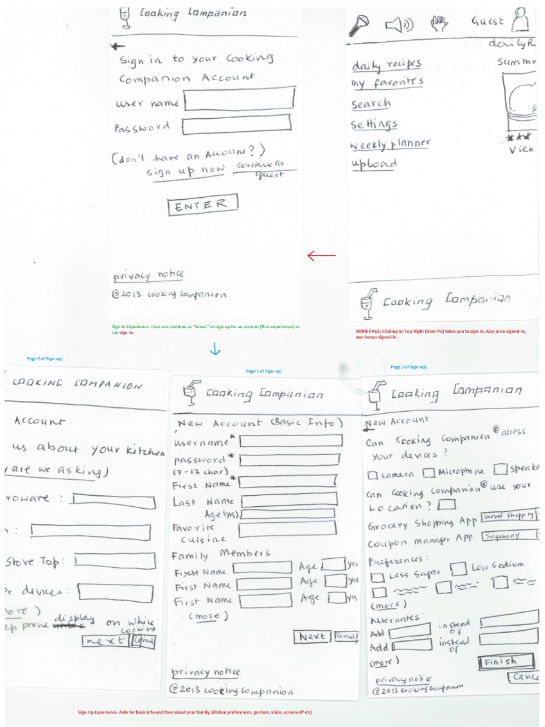 Cooking Companion
Sign in to your Cooking
Companion Account
user name
Password
(don't have an Account?)
sign up now continue as
guest
ENTER
privacy notice
@2013 cooking companion
Guest
dailyR
daily recipes
Summ
my favorites
search
settings
weekly planner
upload
View
Cooking Companion
Sign-in Experience. User can continue as "Guest" or sign-up for an account (first experience) or
can sign-in.
HOME PAGE: Clicking on Top Right (User Pic) takes you to sign-in. Also once signed-in,
user keeps signed-in.
Page 2 of Sign-up)
COOKING COMPANION
Account
us about your kitchen
are we asking)
roware :
:
Stove Top :
devices :
ore )
ep phone display on while
cooking
next Cancel
Page 1 of Sign-up)
Cooking Companion
New Account (Basic Info)
username*
password*
(7-13 char)
First Name*
Last Name
Age (yrs)
Favorite
cuisine
Family Members
First Name Age yrs
First Name Age yrs
First Name Age yrs
(more)
Next Cancel
privacy notice
@2013 cooking companion
Page 3 of Sign-up)
Cooking Companion
New Account
Can Cooking Companion® access
your devices ?
Camera Microphone Speake
Can Cooking Companion® use your
Location ?
Grocery Shopping App
Coupon Manager App Safeway
Preferences:
Less Sugar Low Sodium
(more)
Alternates:
Add instead
of
Add instead
of
(more)
Finish
privacy notice
Cance
@2013 cooking companion
Sign-Up Experience. Asks for basic info and then about your family, kitchen preferences, gesture, voice, screen off etc)